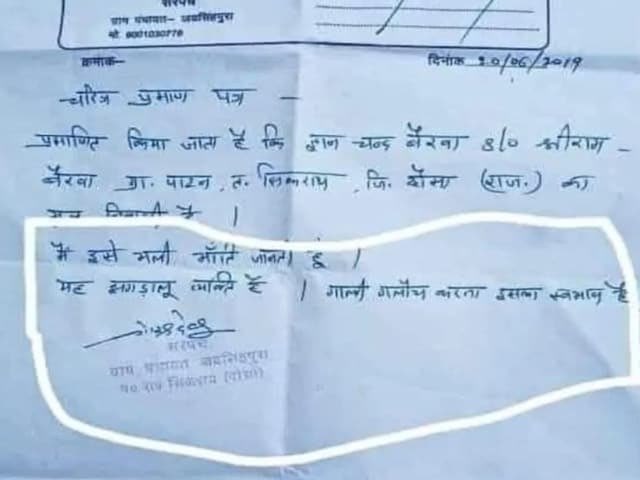 सरपंच
ग्राम पंचायत- जयसिंहपुरा
मो. 9001030779
क्रमांक- दिनांक 20/06/2019
चरित्र प्रमाण पत्र -
प्रमाणित किया जाता है कि ज्ञान चन्द बैरवा S/o श्रीराम -
बैरवा ग्रा. पाटन, त. सिकराय, जि. दौसा (राज.) का
मूल निवासी है ।
मैं इसे भली भाँति जानता हूं ।
यह झगड़ालू व्यक्ति है । गाली गलौच करना इसका स्वभाव है
सरपंच
ग्राम पंचायत जयसिंहपुरा
पं० स० सिकराय (दौसा)